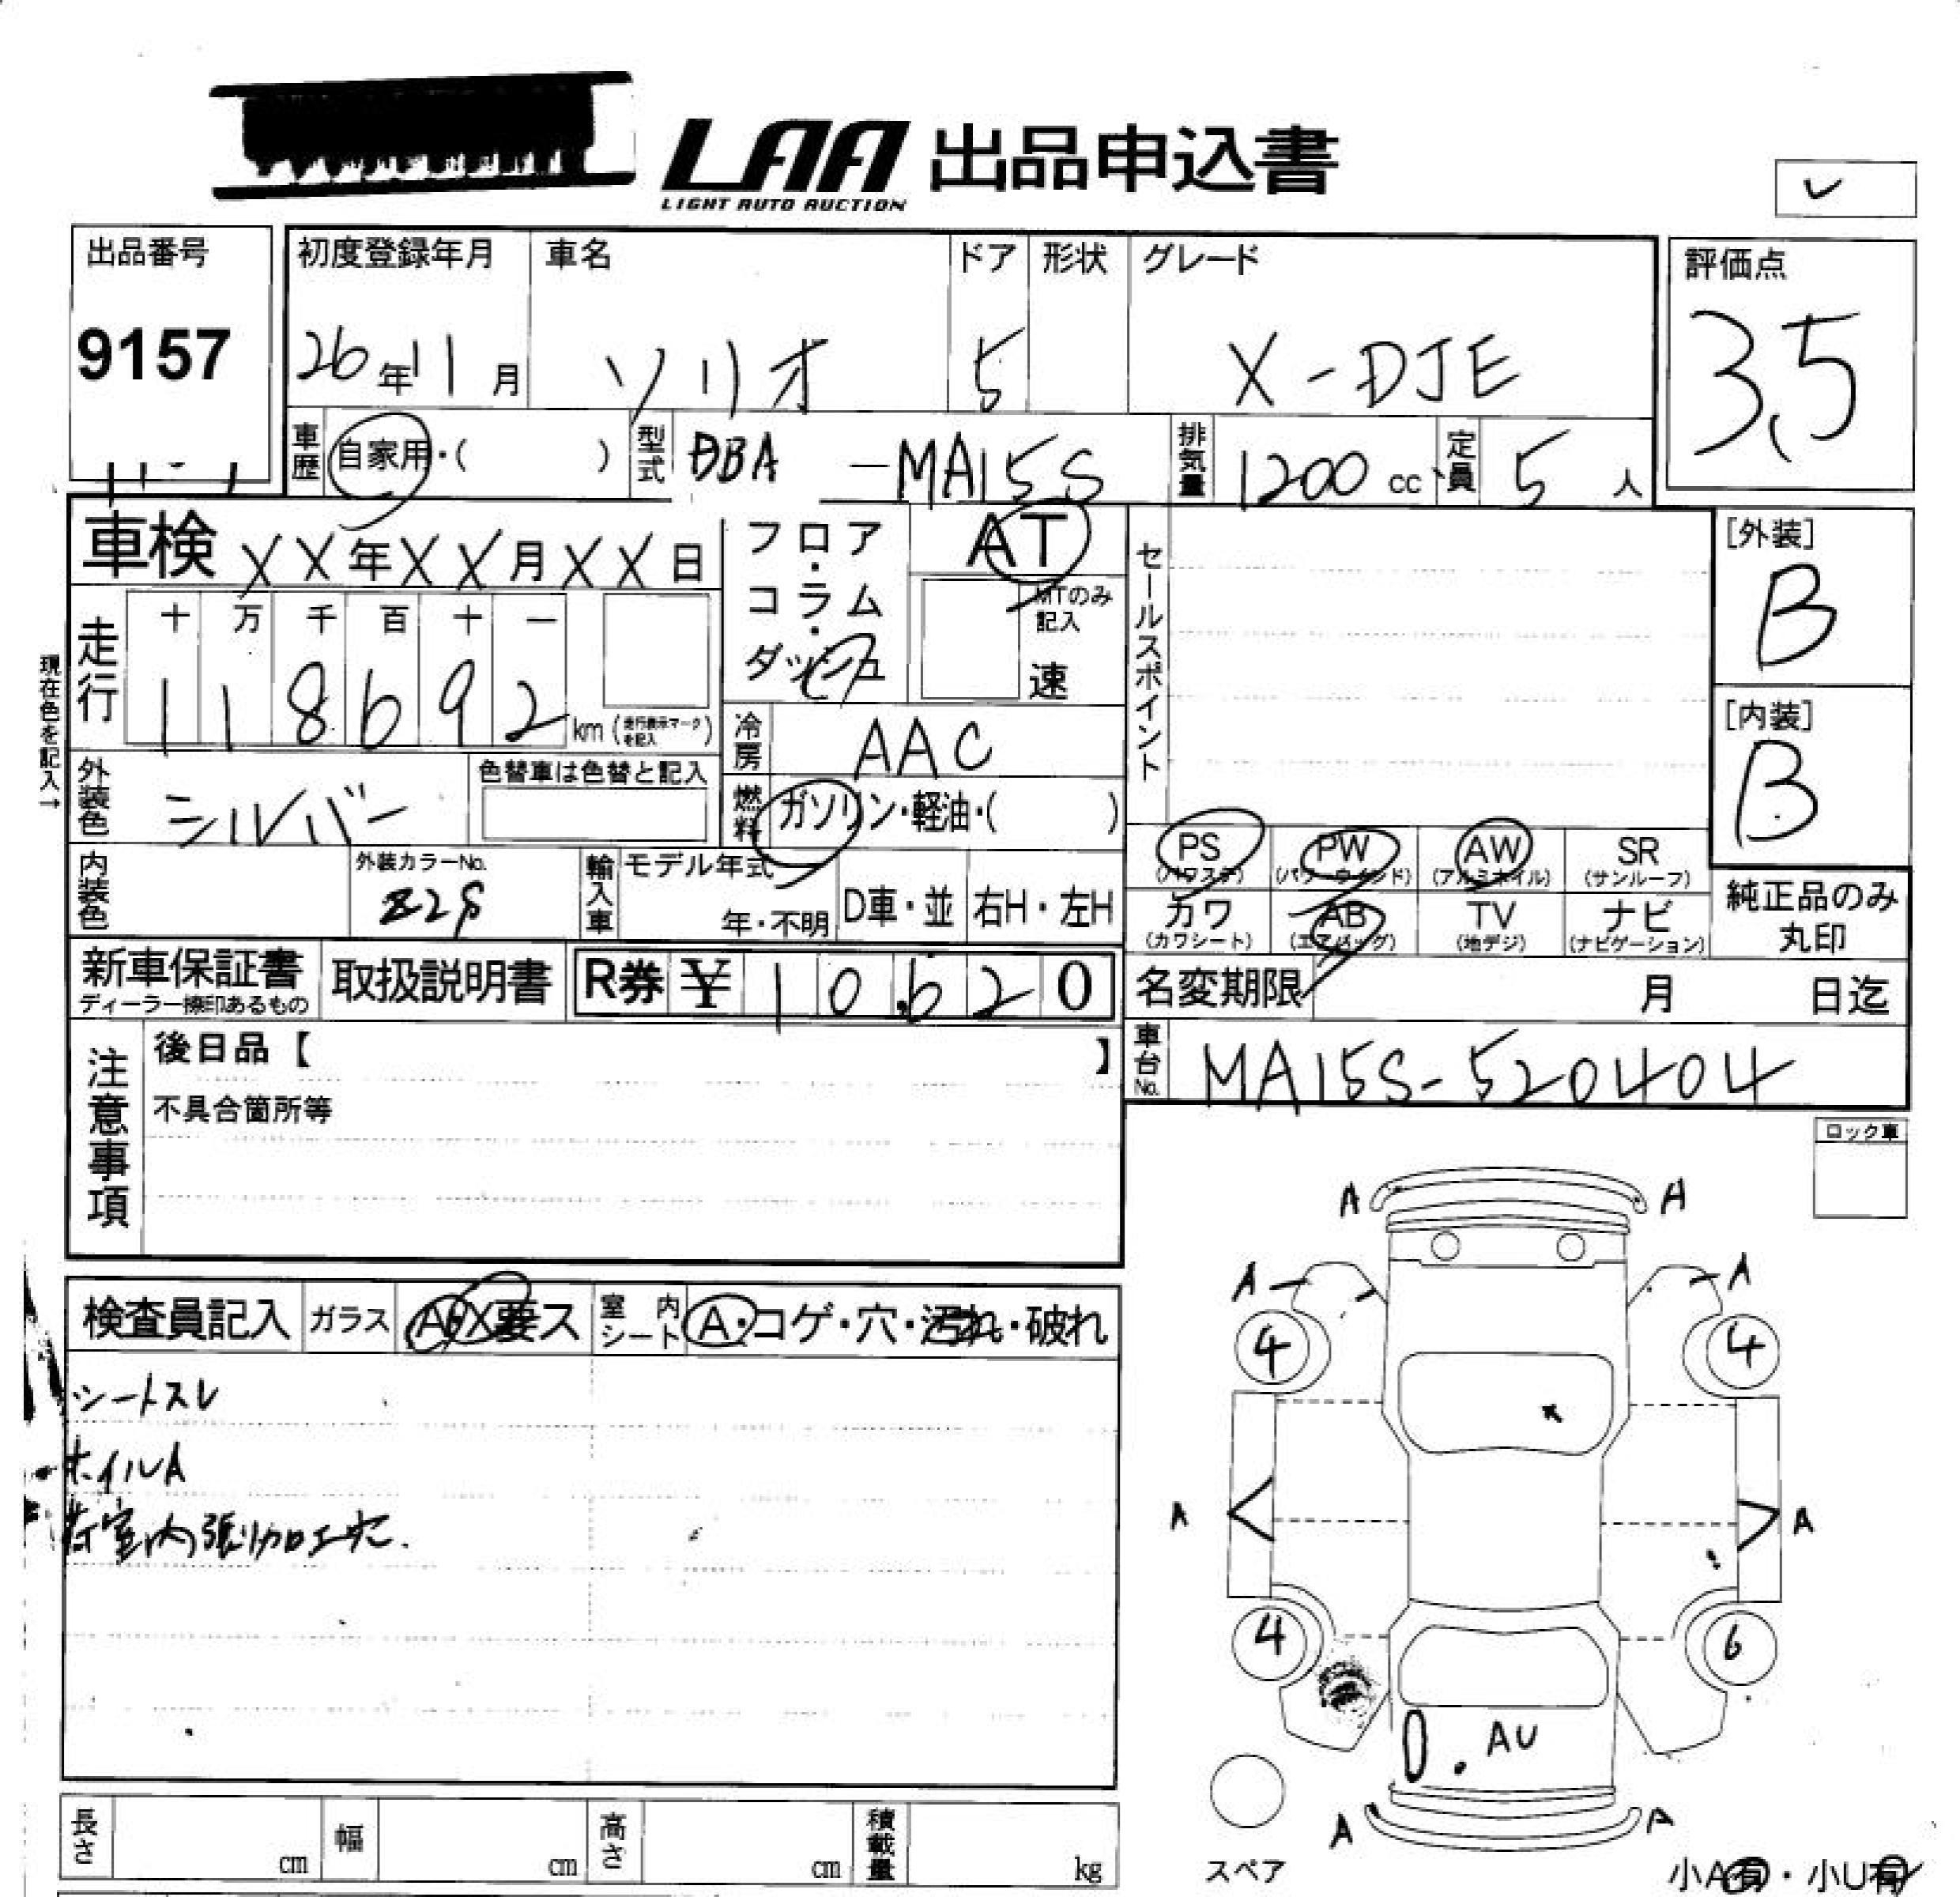 LAA 出品申込書
LIGHT AUTO AUCTION
出品番号
9157
初度登録年月
26年11月
車名
ソリオ
ドア
5
形状
グレード
X-DJE
評価点
3.5
車歴
自家用・( )
型式
DBA -MA15S
排気量
1200 cc
定員
5 人
車検 XX年XX月XX日
フロア・コラム・ダッシュ
AT
MTのみ記入
速
セールスポイント
[外装]
B
[内装]
B
走行
十 万 千 百 十 一
1 1 8 6 9 2 km (走行表示マークを記入)
現在色を記入→
冷房
AAC
外装色
シルバー
色替車は色替と記入
燃料
ガソリン・軽油・( )
内装色
外装カラーNo.
Z2S
輸入車
モデル年式
年・不明
D車・並
右H・左H
PS (パワステ)
PW (パワーウインド)
AW (アルミホイル)
SR (サンルーフ)
カワ (カワシート)
AB (エアバッグ)
TV (地デジ)
ナビ (ナビゲーション)
純正品のみ丸印
新車保証書
ディーラー捺印あるもの
取扱説明書
R券 ¥ 10,620
名変期限 月 日迄
注意事項
後日品【 】
不具合箇所等
車台No.
MA15S-520404
ロック車
検査員記入
ガラス
A・X要ス
室内シート
A・コゲ・穴・汚れ・破れ
シートスレ
ホイルA
荷室内張り加工穴.
A A
A A
4 4
A A
4 6
AU
A A
スペア
小A有・小U有
長さ cm
幅 cm
高さ cm
積載量 kg